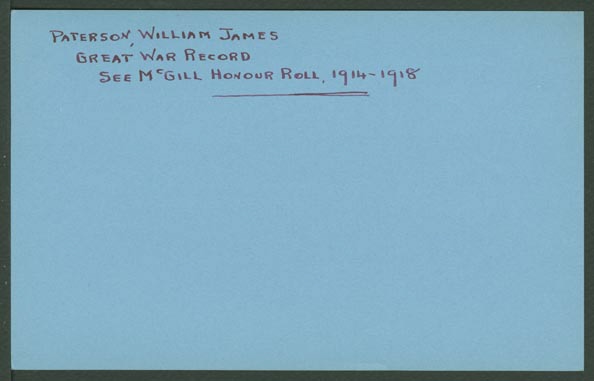 PATERSON, WILLIAM JAMES
GREAT WAR RECORD
SEE McGILL HONOUR ROLL, 1914-1918